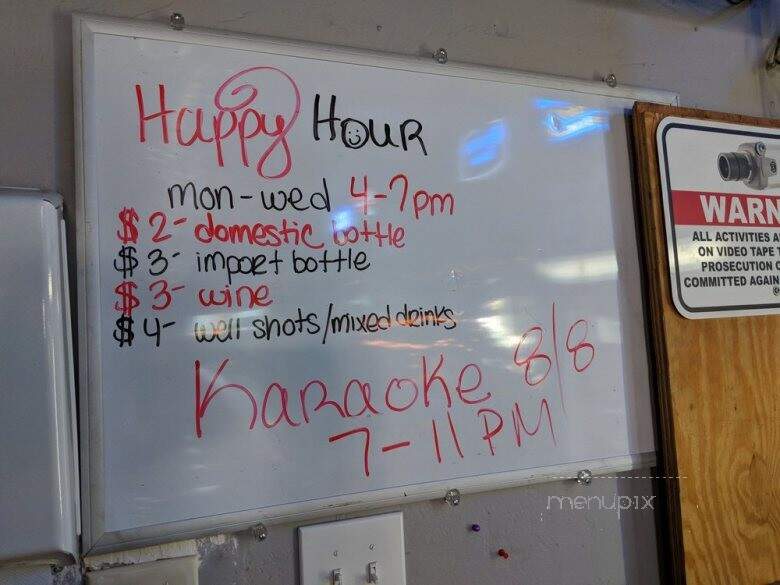 Happy Hour
mon-wed 4-7pm
$2- domestic bottle
$3- import bottle
$3- wine
$4- well shots/mixed drinks
Karaoke 8/8
7-11 PM
WARN
ALL ACTIVITIES A
ON VIDEO TAPE T
PROSECUTION O
COMMITTED AGAIN
menupix